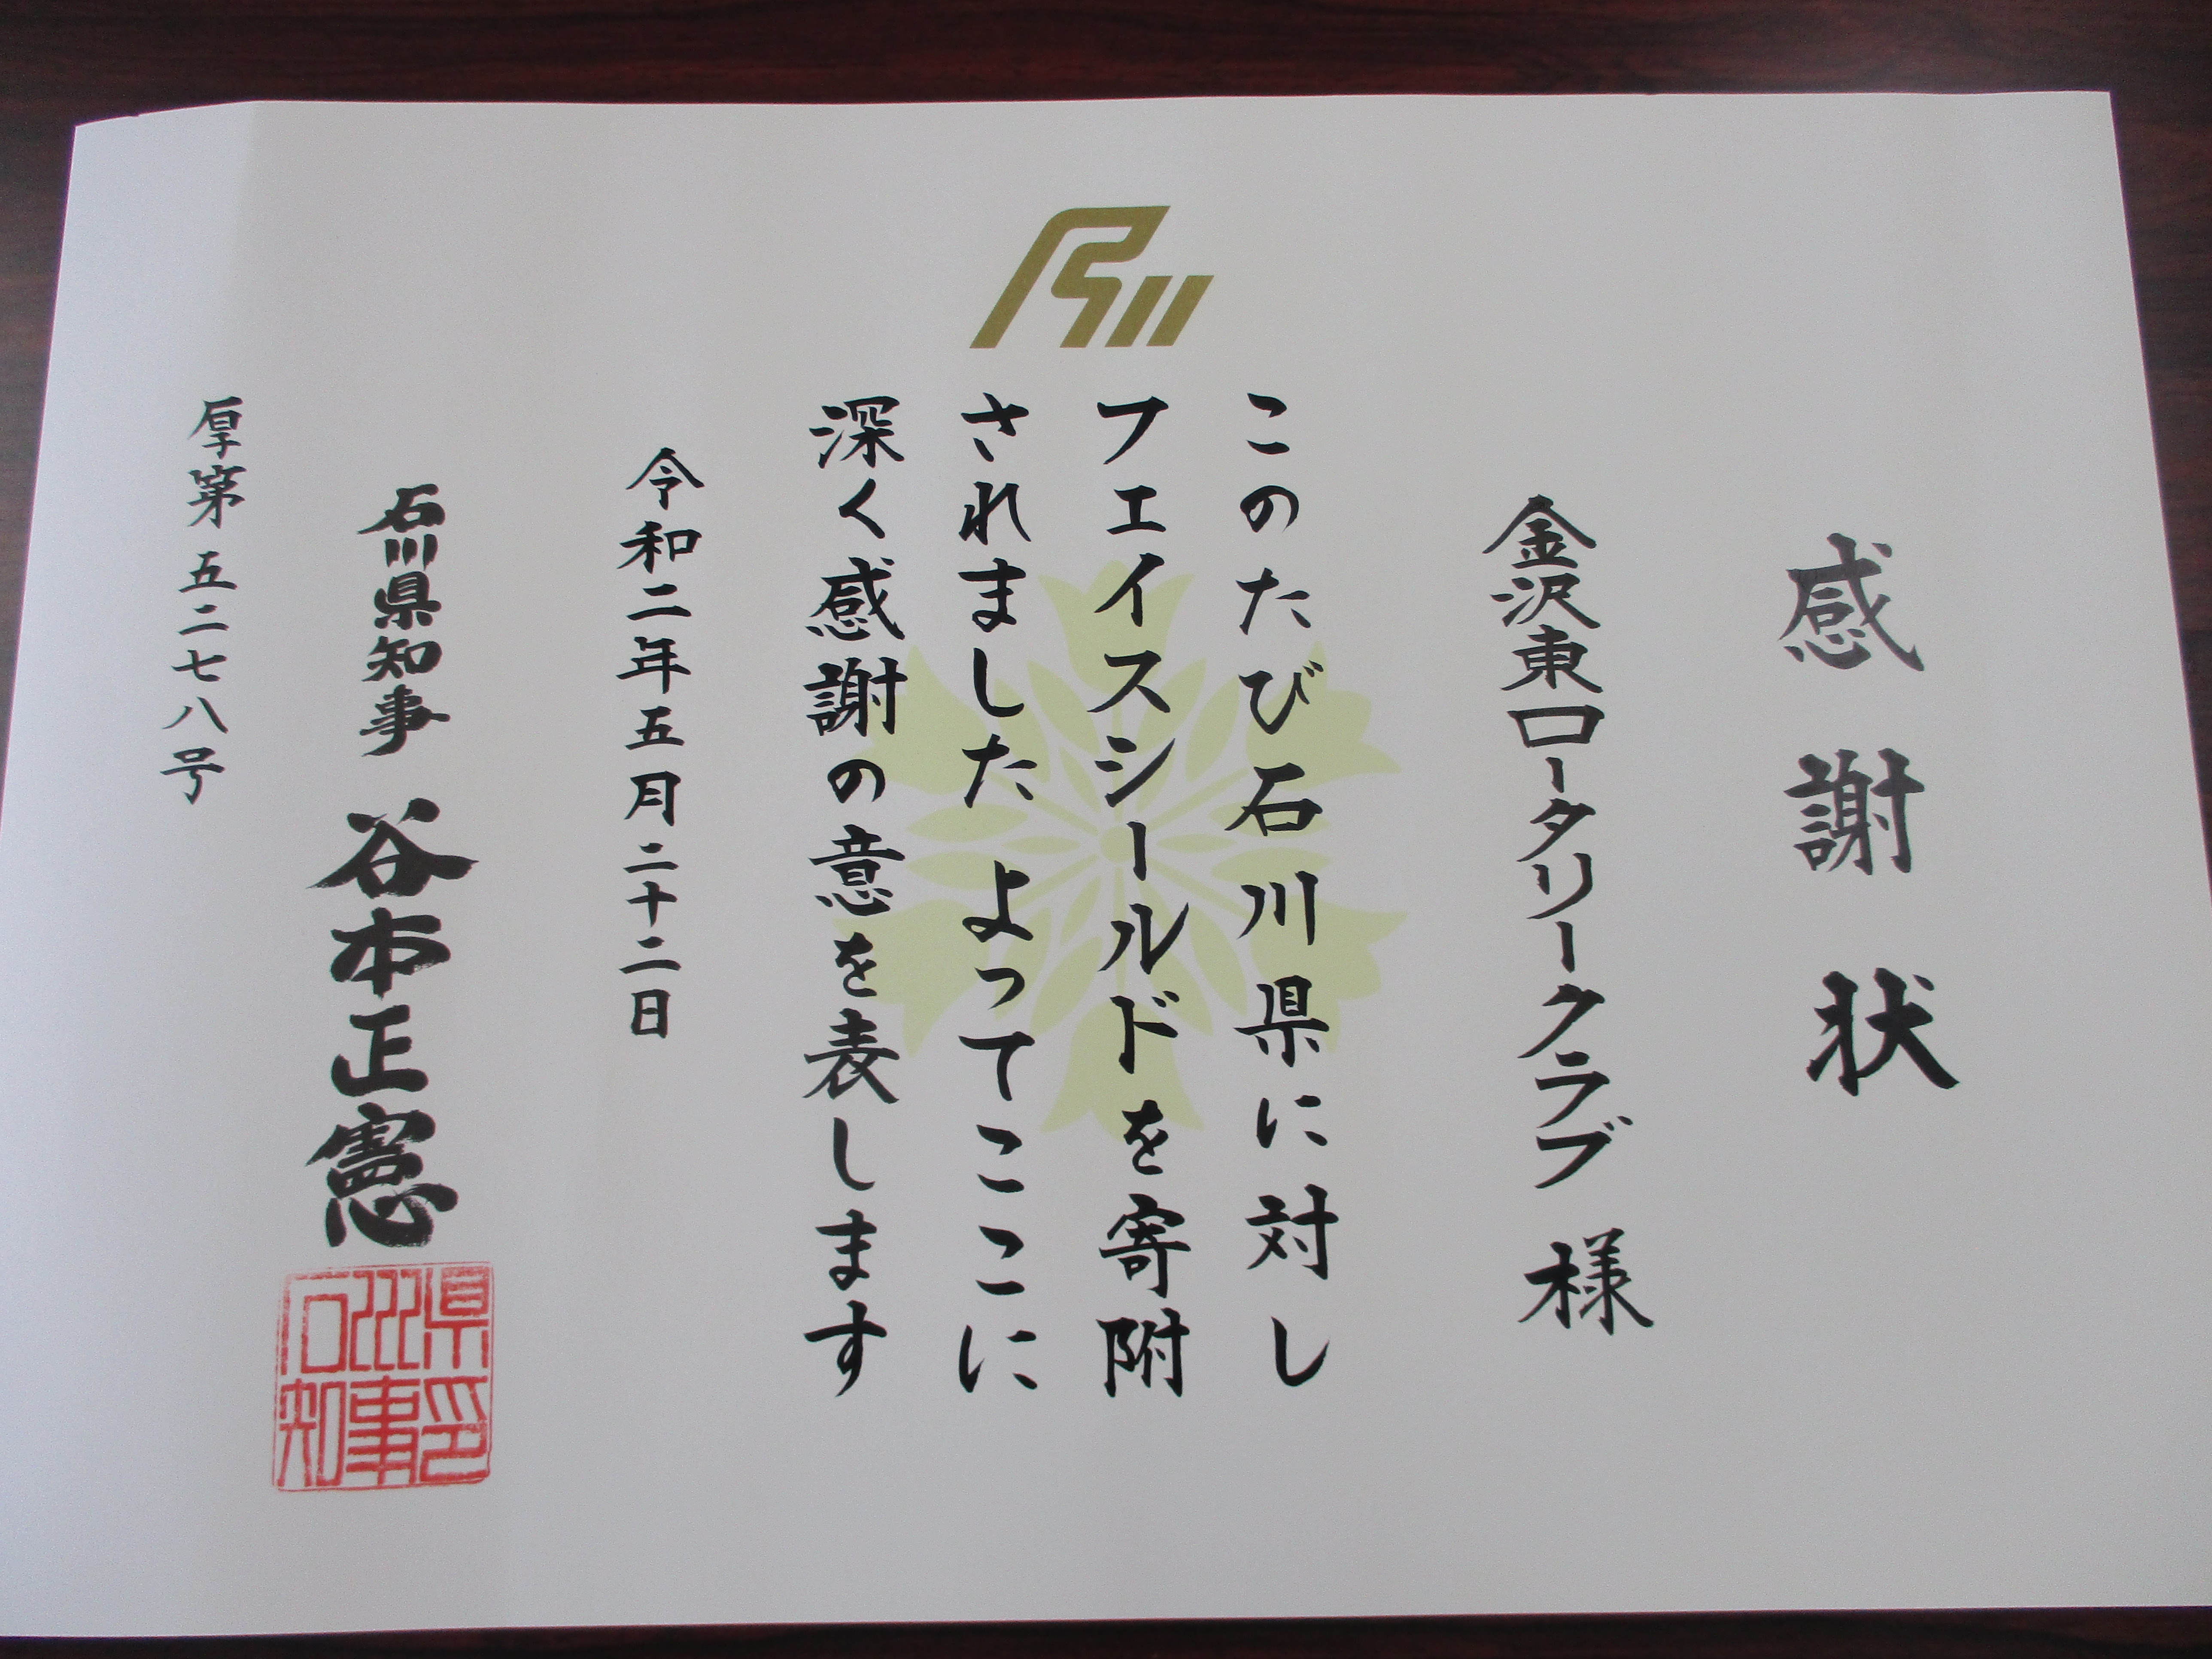 感謝状
金沢東ロータリークラブ 様
このたび石川県に対し
フェイスシールドを寄附
されました よってここに
深く感謝の意を表します
令和二年五月二十二日
石川県知事 谷本正憲
厚第五二七八号
石川県知事印